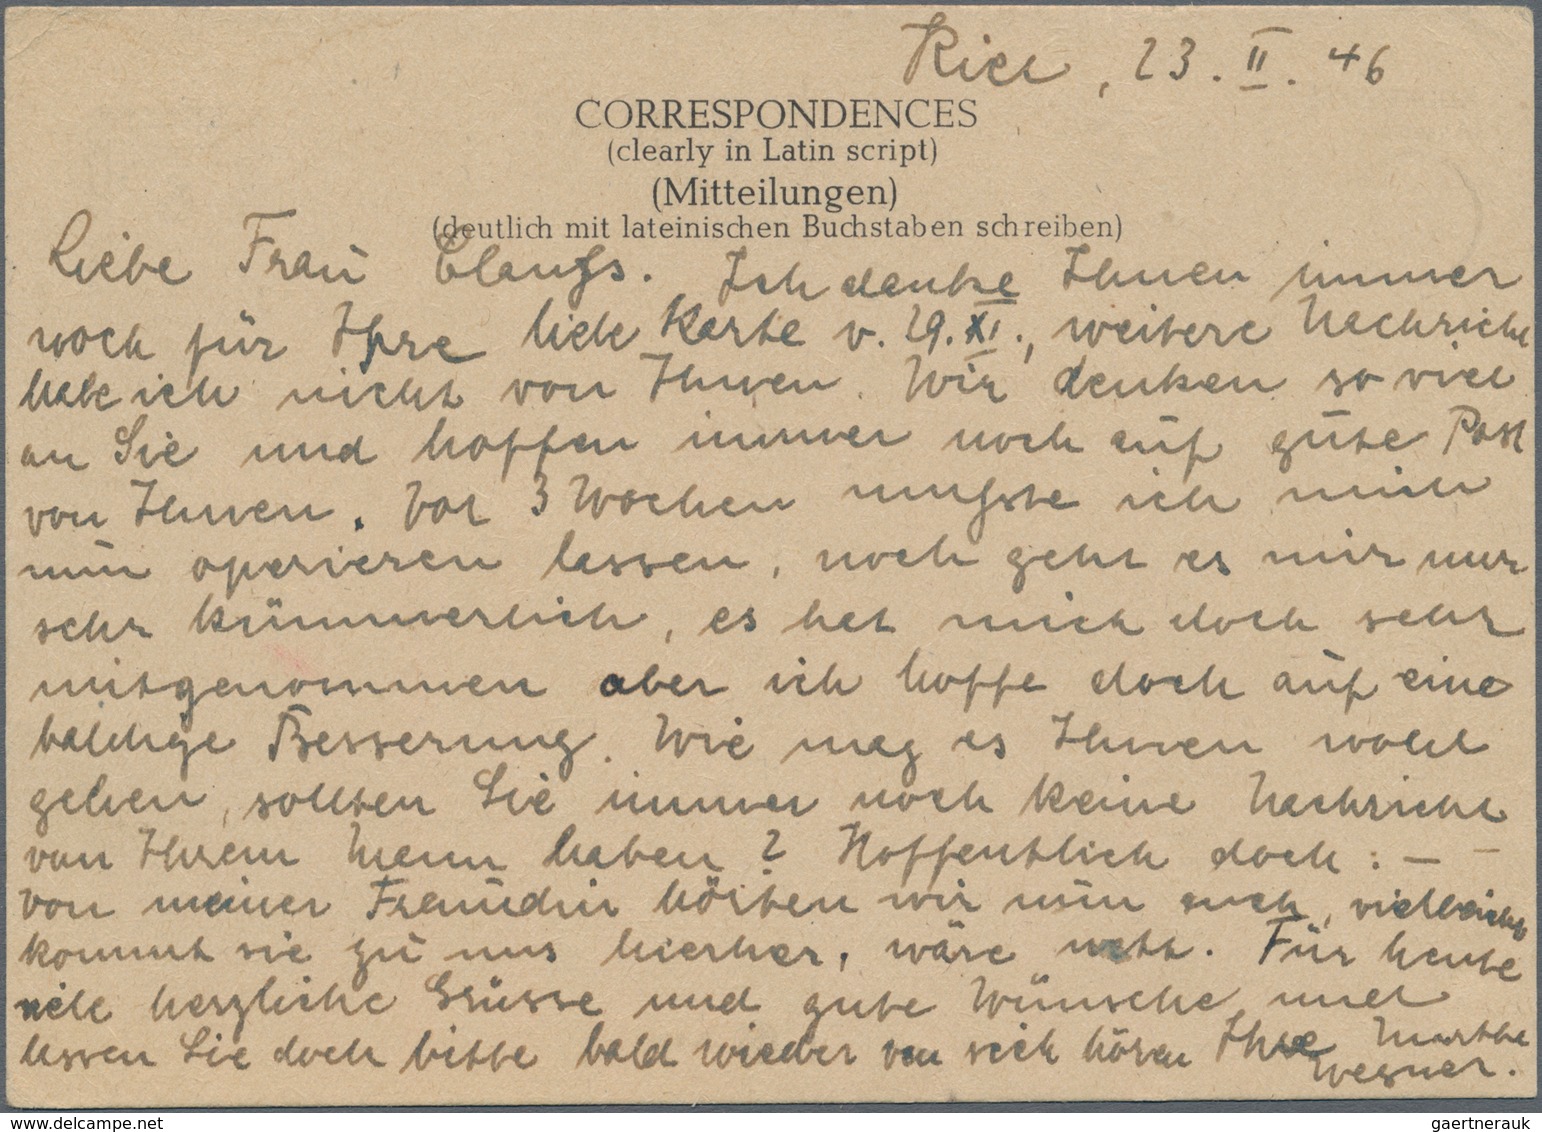 Kiel, 23. II. 46
CORRESPONDENCES
(clearly in Latin script)
(Mitteilungen)
(deutlich mit lateinischen Buchstaben schreiben)
Liebe Frau Clauẞs. Ich danke Ihnen immer
noch für Ihre liebe Karte v. 29. XI., weitere Nachricht
habe ich nicht von Ihnen. Wir denken so viel
an Sie und hoffen immer noch auf gute Post
von Ihnen. Vor 3 Wochen mußste ich mich
nun operieren lassen, noch geht es mir nur
sehr kümmerlich, es hat mich doch sehr
mitgenommen aber ich hoffe doch auf eine
baldige Besserung. Wie mag es Ihnen wohl
gehen, sollten Sie immer noch keine Nachricht
von Ihrem Mann haben? Hoffentlich doch: —
von meiner Freundin hörten wir nun auch, vielleicht
kommt sie zu uns hierher, wäre nett. Für heute
viele herzliche Grüsse und gute Wünsche und
lassen Sie doch bitte bald wieder von sich hören Ihre Marthe
Wegner.
delcampe.net
gaertnerauk